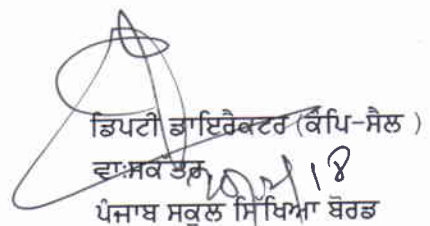 ਡਿਪਟੀ ਡਾਇਰੈਕਟਰ (ਕੰਪਿ-ਸੈਲ )
ਵਾ:ਸਕੱਤਰ
ਪੰਜਾਬ ਸਕੂਲ ਸਿੱਖਿਆ ਬੋਰਡ